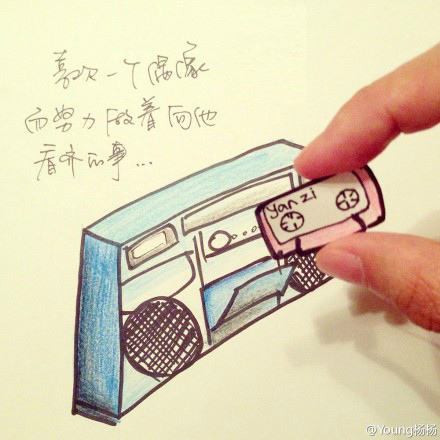 喜欢一个偶像
而努力做着向他
看齐的事...
yanzi
@Young杨杨